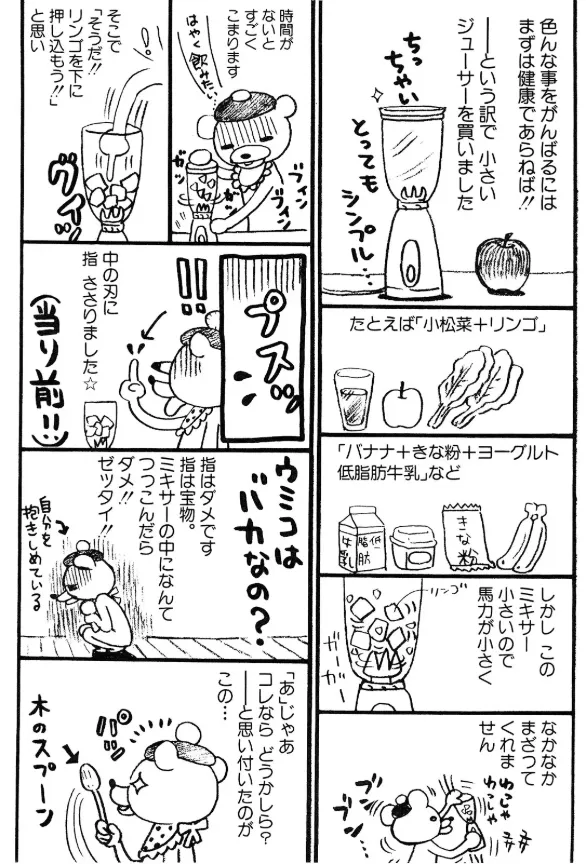 色んな事をがんばるには
まずは健康であらねば!!
――という訳で 小さい
ジューサーを買いました
ちっ
ちゃい
とっても
シンプル…
たとえば「小松菜＋リンゴ」
「バナナ＋きな粉＋ヨーグルト
低脂肪牛乳」など
牛乳
低脂肪
きな粉
しかし この
ミキサー
小さいので
馬力が小さく
リンゴ
ガーガー
なかなか
まざって
くれま
せん
わっしゃ
わっしゃ
時間が
ないと
すごく
こまります
はやく飲みたい
ガッ
ガッ
ヴィン
ヴィン
そこで
「そうだ!!
リンゴを下に
押し込もう!!」
と思い
ヴィッ
プスッ
!!
中の刃に
指 ささりました☆
(当り前!!)
ウミコは
バカなの?
指はダメです
指は宝物。
ミキサーの中になんて
つっこんだら
ダメ!!
ゼッタイ!!
自分を
抱きしめている
「あ」じゃあ
コレなら どうかしら?
――と思い付いたのが
この…
木のスプーン